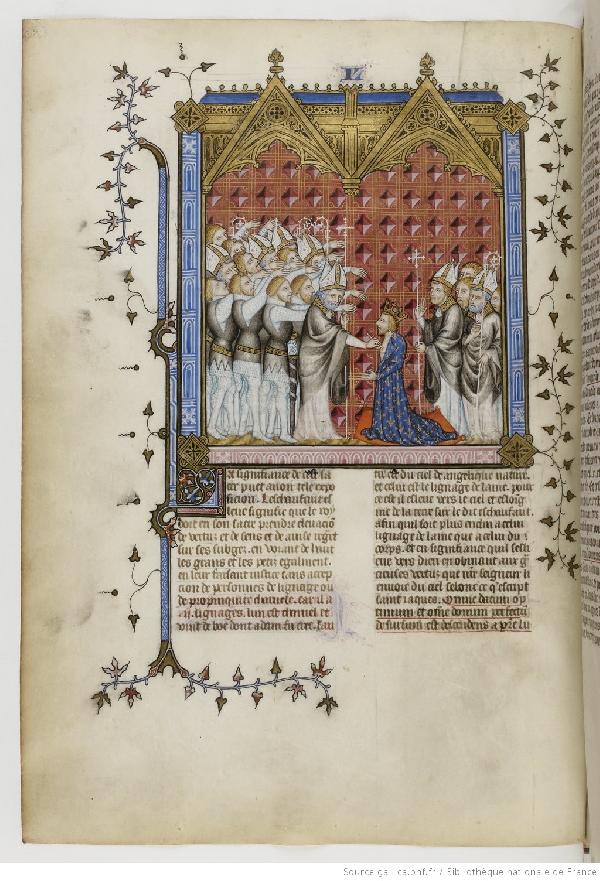 IV
e signifiance de cest sa
cre puet avoir tele expo
sicion. Leschaufaut es
leue signifie que le roy
doit en son sacre prendre elevacion
de vertu et de sens et de
sur ses subgez. en voiant de haut
les grans et les petiz egalment.
en leur faisant justice sans accep
cion de personnes de lignage ou
de propinquite charnele. car il a
.ij. lignages. lun est charnel et
vint de boe dont adam fu cree. Lau
tre est du ciel de angelique nature.
et celui est le lignage de lame. pour
ce est il esleue vers le ciel et esloig
ne de la terre sur le dit eschaufaut.
afin quil soit plus enclin a celui
lignage de lame que a celui du
corps. et en signifiance quil seslie
ue vers dieu en obeissant aus
vertuz que nostre seigneur li
envoie du ciel selonc ce quescript
saint jaques. Omne datum op
timum et omne donum perfectum
de sursum est descendens a patre lu
Source gallica.bnf.fr / Bibliothèque nationale de France